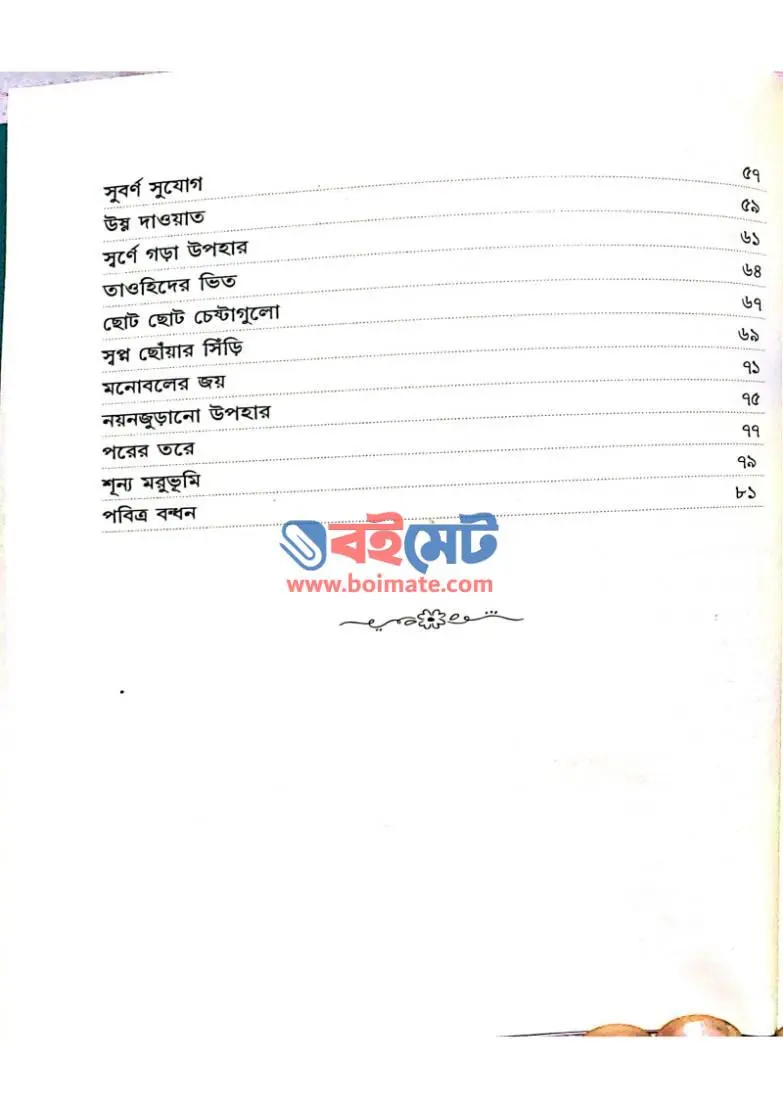 সুবর্ণ সুযোগ ৫৭
উষ্ণ দাওয়াত ৫৯
স্বর্ণে গড়া উপহার ৬১
তাওহিদের ভিত ৬৪
ছোট ছোট চেষ্টাগুলো ৬৭
স্বপ্ন ছোঁয়ার সিঁড়ি ৬৯
মনোবলের জয় ৭১
নয়নজুড়ানো উপহার ৭৫
পরের তরে ৭৭
শূন্য মরুভূমি ৭৯
পবিত্র বন্ধন ৮১
বইমেট
www.boimate.com